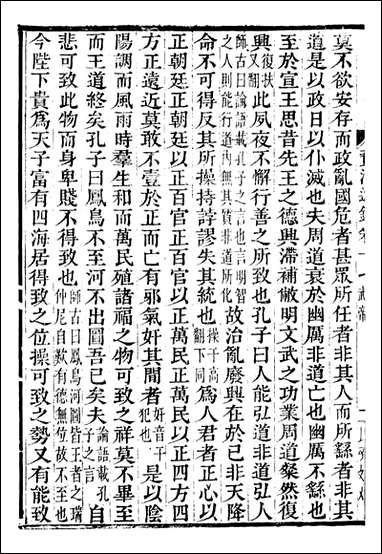 莫不欲安存而政亂國危者甚眾所任者非其人而所繇者非其
道是以政日以仆滅也夫周道衰於幽厲非道亡也幽厲不繇也
至於宣王思昔先王之德興滯補敝明文武之功業周道粲然復
興復扶又翻此夙夜不懈行善之所致也孔子曰人能弘道非道弘人
師古曰論語載孔子之言也言明智之人則能行道内無其質非道所化故治亂廢興在於己非天降
命不可得反其所操持誖謬失其統也操千高翻下同爲人君者正心以
正朝廷正朝廷以正百官正百官以正萬民正萬民以正四方四
方正遠近莫敢不壹於正而亡有邪氣奸其間者奸音干犯也是以陰
陽調而風雨時羣生和而萬民殖諸福之物可致之祥莫不畢至
而王道終矣孔子曰鳳鳥不至河不出圖吾已矣夫論語載孔子之言自
悲可致此物而身卑賤不得致也師古曰鳳鳥河圖皆王者之瑞仲尼自歎有德無位故不至也
今陛下貴爲天子富有四海居得致之位操可致之勢又有能致